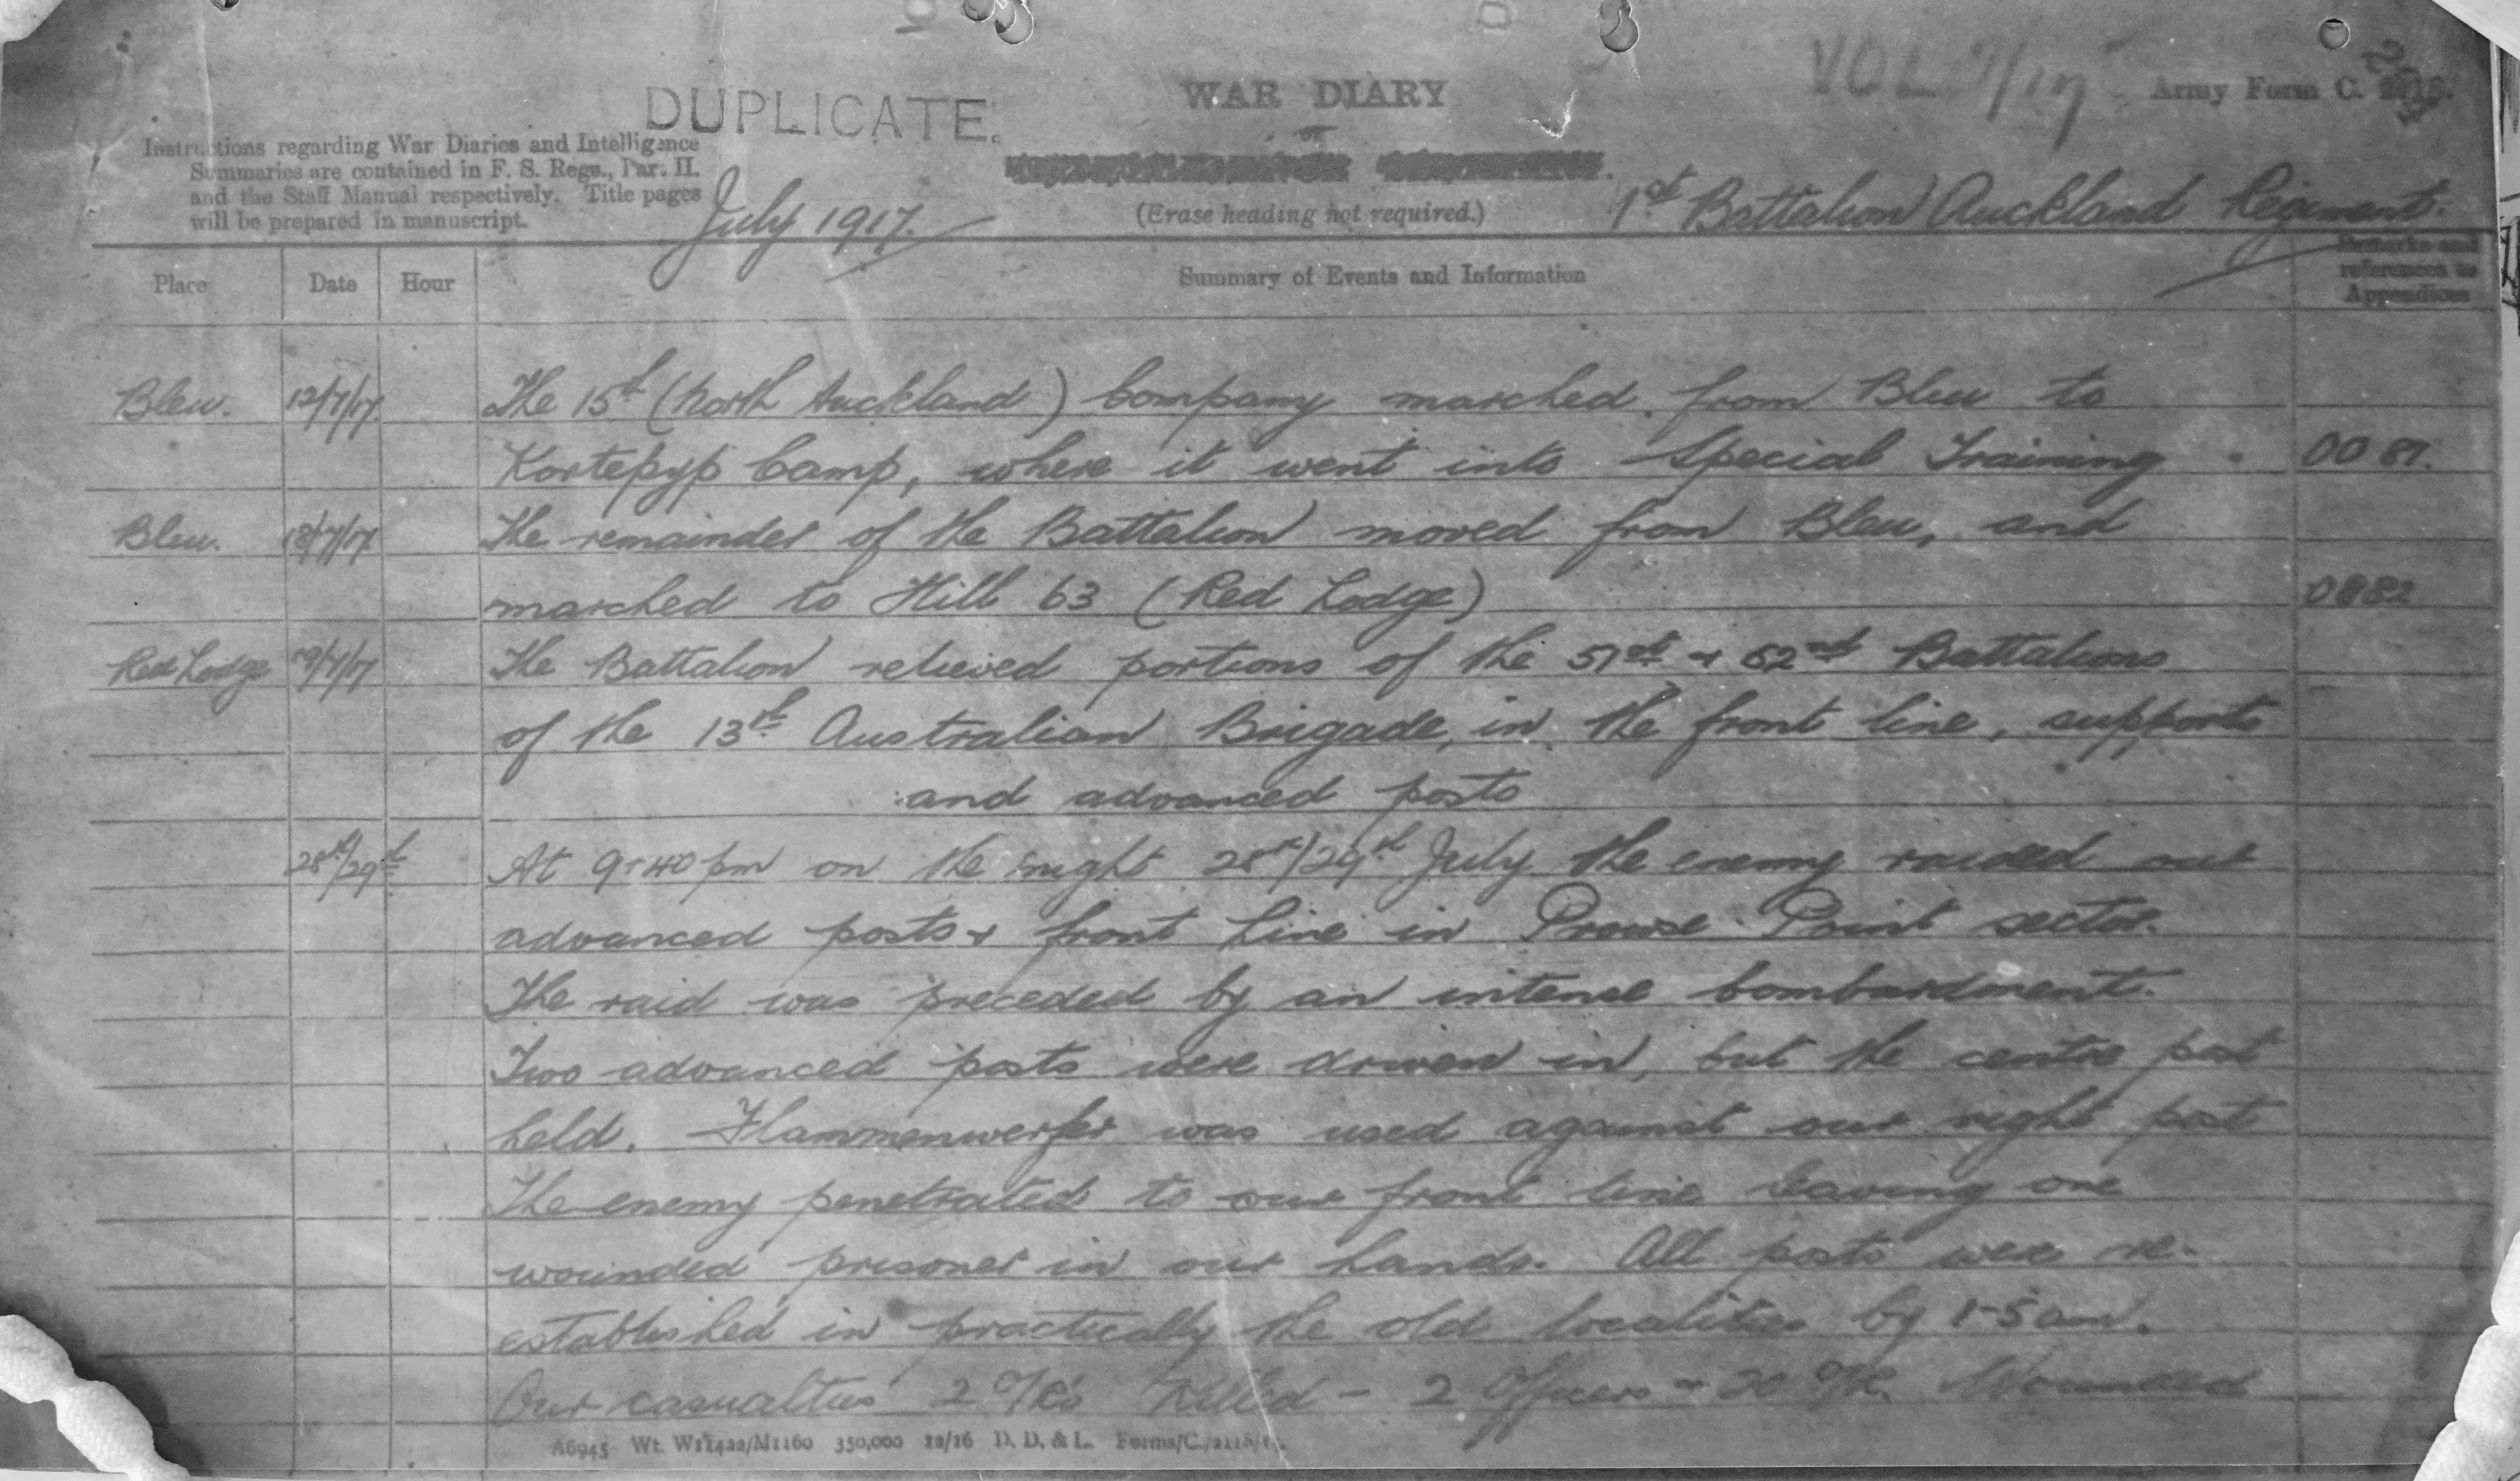 DUPLICATE.
WAR DIARY
or
VOL 7/17
Army Form C.
Instructions regarding War Diaries and Intelligence
Summaries are contained in F. S. Regs., Part II.
and the Staff Manual respectively. Title pages
will be prepared in manuscript.
July 1917.
(Erase heading not required.)
1st Battalion Auckland Regiment.
Place Date Hour Summary of Events and Information Remarks and
references to
Appendices
Bleu. 12/7/17 The 15th (North Auckland) Company marched from Bleu to
Kortepyp Camp, where it went into Special Training. OO 81.
Bleu. 18/7/17 The remainder of the Battalion moved from Bleu, and
marched to Hill 63 (Red Lodge)
Red Lodge The Battalion relieved portions of the 51st & 52nd Battalions
of the 13th Australian Brigade, in the front line, supports
and advanced posts
28th/29th At 9-40 pm on the night 28th/29th July the enemy raided our
advanced posts & front line in Prowse Point sector.
The raid was preceded by an intense bombardment.
Two advanced posts were driven in, but the centre post
held. Flammenwerfer was used against our right post
The enemy penetrated to our front line leaving one
wounded prisoner in our hands. All posts were re-
established in practically the old localities by 1-5 am.
Our casualties 2 O/R's Killed - 2 Officers & 20 O/R. Wounded
A6945 Wt. W11422/M1160 350,000 12/16 D. D. & L. Forms/C./2118/14.